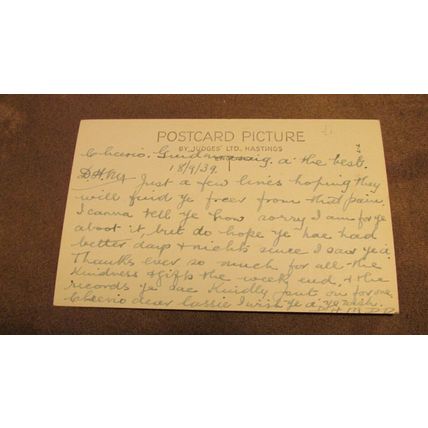 POSTCARD PICTURE
BY JUDGES' LTD, HASTINGS
Cheerio. Guid a' the best.
18/9/39
Just a few lines hoping they
will find ye freer from that pain.
I canna tell ye how sorry I am for ye
aboot it, but do hope ye hae had
better days & nichts since I saw ye.
Thanks ever so much for all the
kindness & gifts the week end, & the
records ye sae kindly put on for me.
Cheerio dear lassie I wish ye a' ye wish.